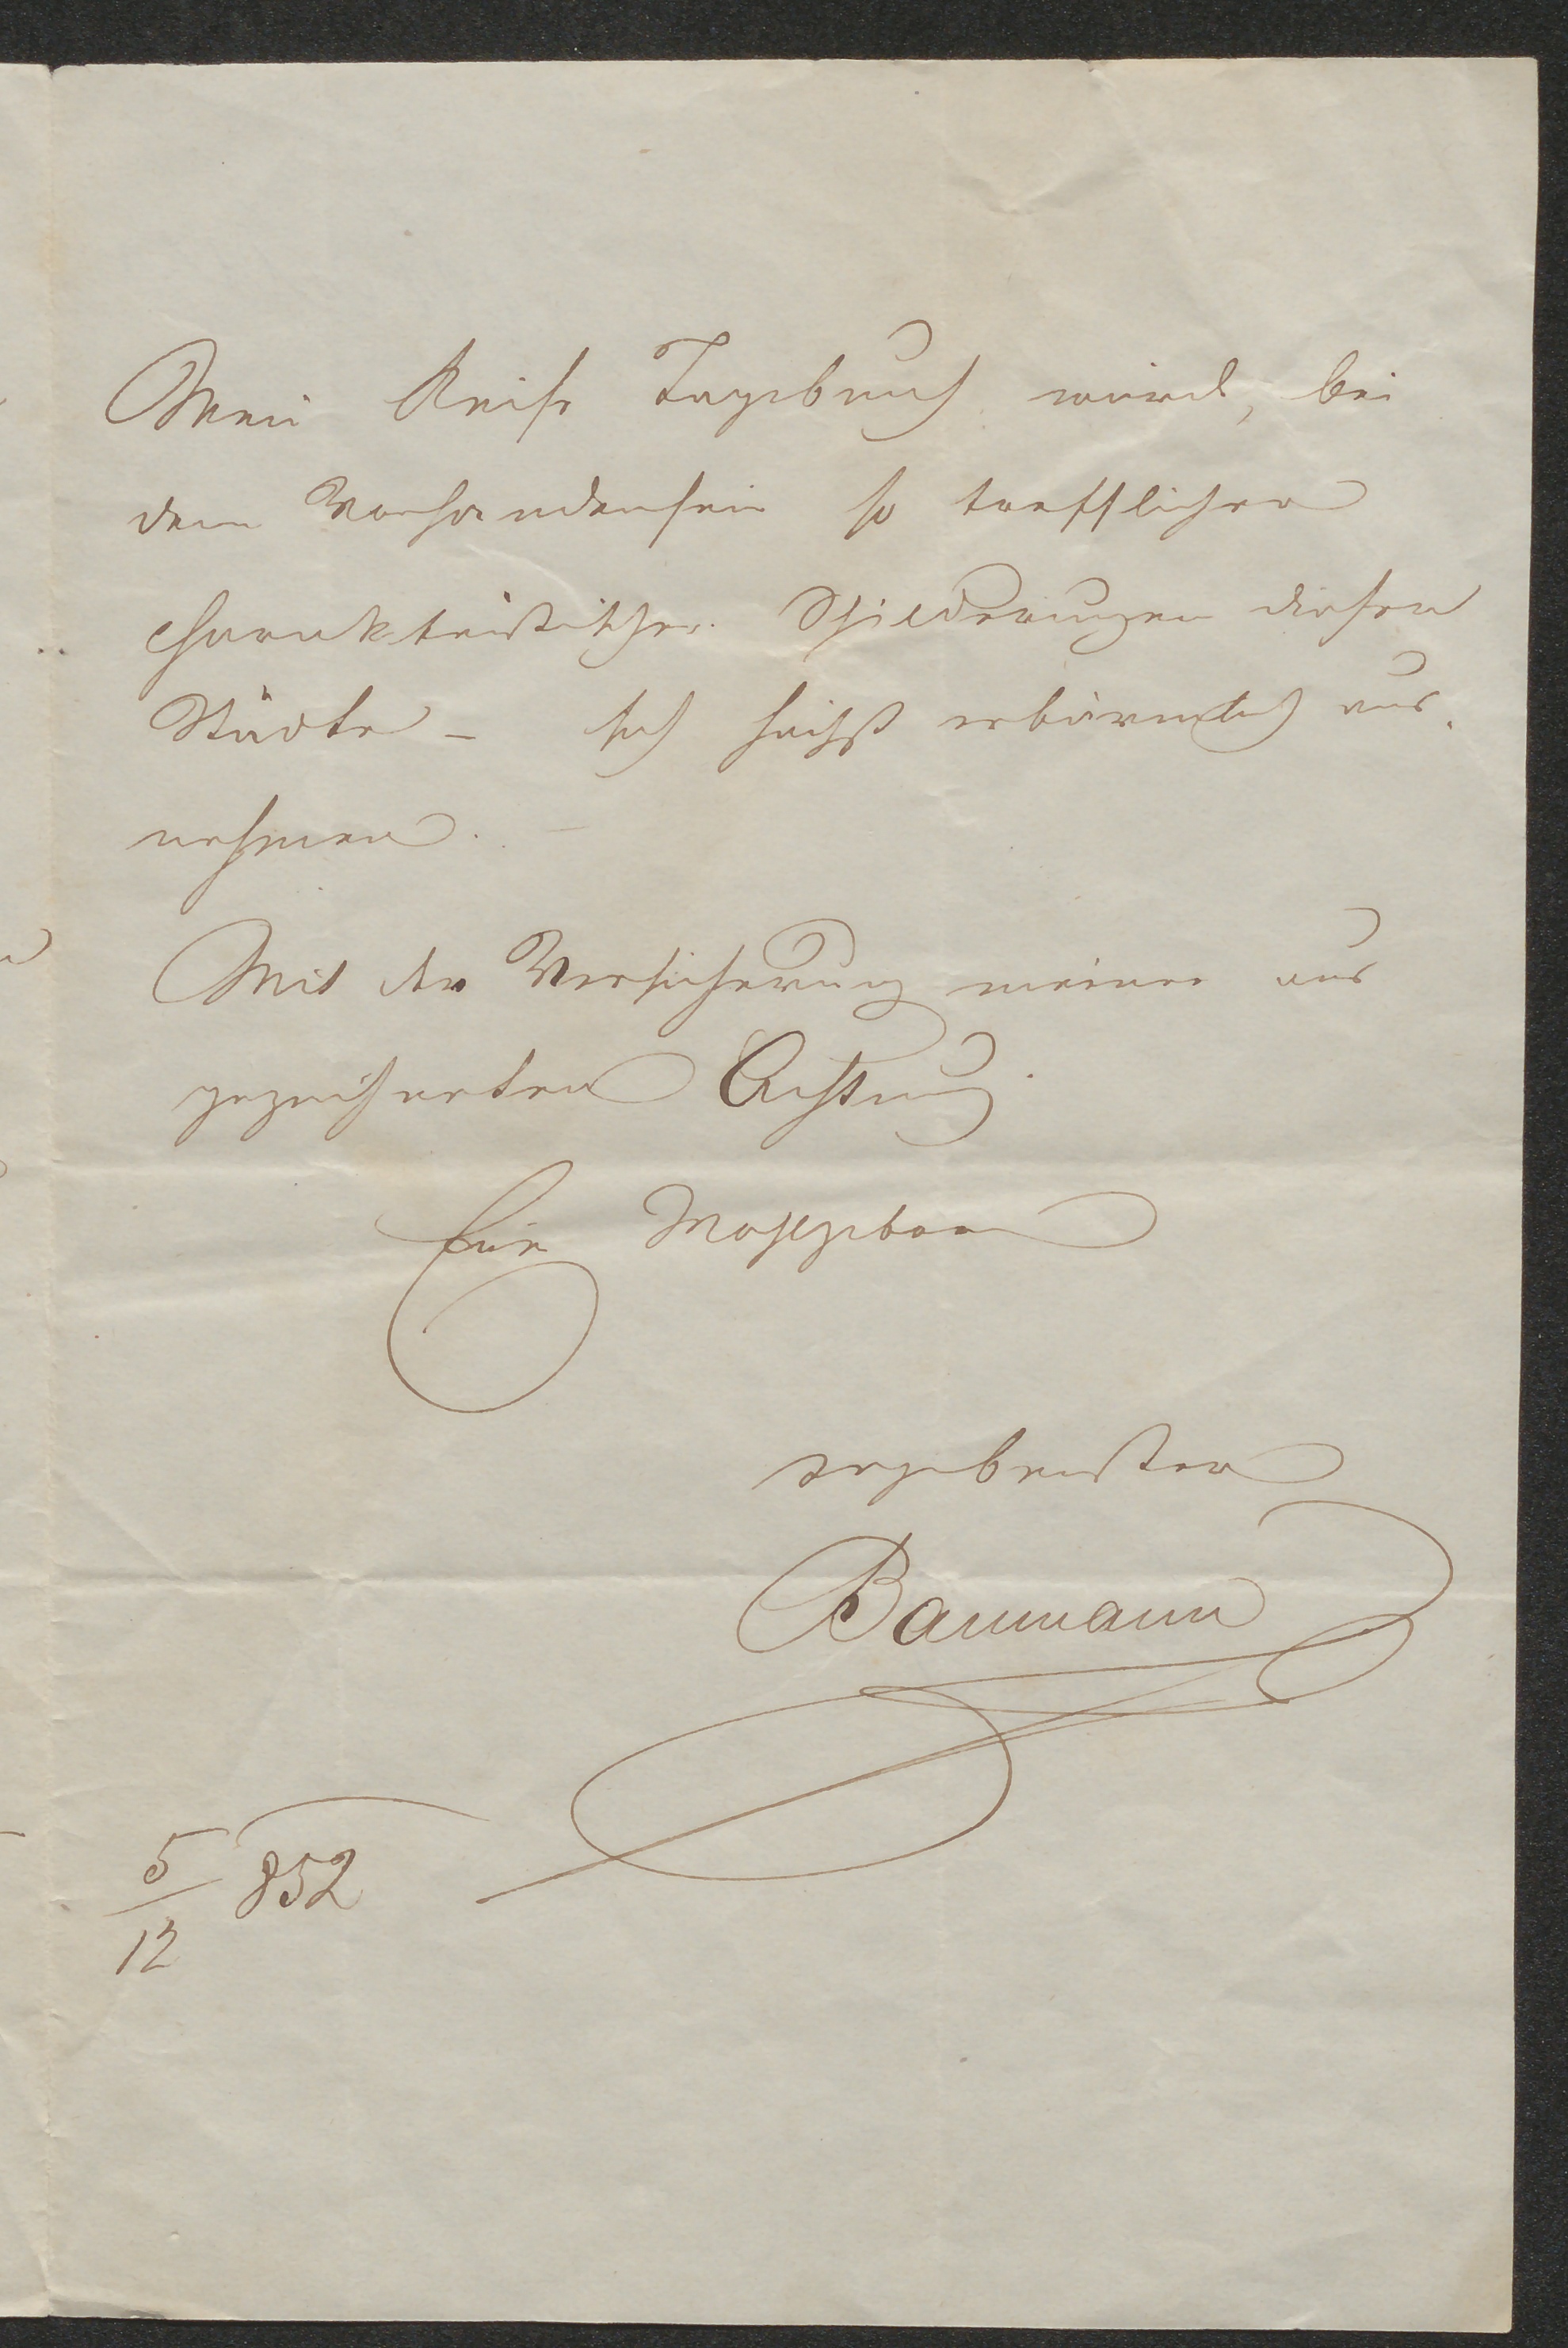 Mein Reise Tagebuch wird, bei
dem Vorhandensein so trefflicher
charakteristischer Schilderungen dieser
Städte – sich höchst erbärmlich aus-
nehmen. –
Mit der Versicherung meiner aus
gezeichneten Achtung.
Euer Wohlgeboren
ergebenster
Baumann
5/12 852